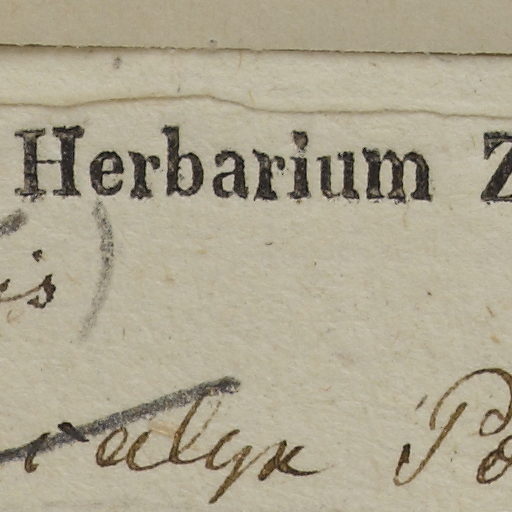 Herbarium Z
is)
calyx Po